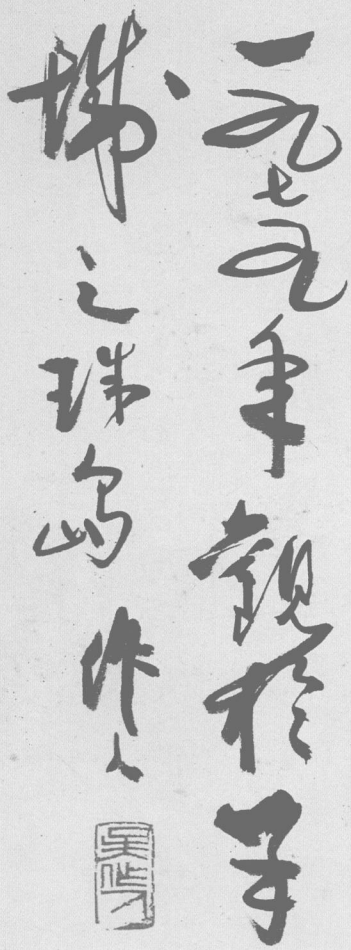 一九七九年觀於羊
城之珠島作人
吴作人